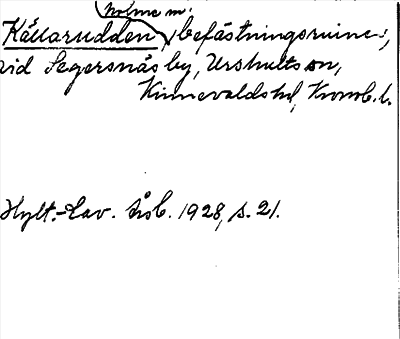 holme m.
Källarudden, befästningsruiner,
vid Segersnäs by, Urshults sn,
Kinnevalds hd, Kronob. l.
Hylt.-Cav. årsb. 1928, s. 21.